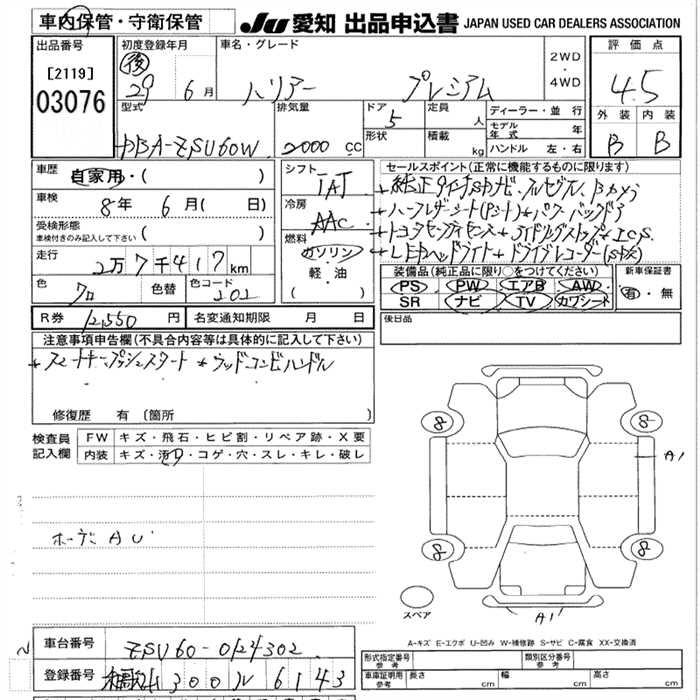 車内保管・守衛保管
JU 愛知 出品申込書 JAPAN USED CAR DEALERS ASSOCIATION
出品番号
[2119]
03076
初度登録年月
後
29 6月
車名・グレード
ハリアー プレミアム
2WD
・
4WD
評価点
4.5
外装 内装
B B
型式
DBA-ZSU60W
排気量
2000 CC
ドア
5
形状
定員
人
積載
kg
ディーラー・並行
モデル年式 年
ハンドル 左・右
車歴
自家用・( )
車検
8年 6月( 日)
受検形態
車検付きのみ記入して下さい ( )
走行
2万7千417km
色
クロ
色替
色コード
202
シフト
IAT
冷房
AAC
燃料
ガソリン
・
軽・油
( )
セールスポイント(正常に機能するものに限ります)
*純正9インチSDナビ、フルセグTV、Bカメラ
*ハーフレザーシート(Pシート)*パワーバックドア
*トヨタセーフティセンス*アイドルグストップ*ICS
*LEDヘッドライト*ドライブレコーダー
装備品(純正品に限り○をつけてください)
PS PW エアB AW
SR ナビ TV カワシート
新車保証書
有・無
R券 12,550円
名変通知期限 月 日
後日品
注意事項申告欄(不具合内容等は具体的に記入して下さい)
*スマートキープッシュスタート *ウッドコンビハンドル
修復歴 有〔箇所 〕
検査員記入欄
FW キズ・飛石・ヒビ割・リペア跡・X要
内装 キズ・汚D・コゲ・穴・スレ・キレ・破レ
ボーデー A U
8 8
A1
8 8
スペア
A1
A-キズ E-エクボ U-凹み W-補修跡 S-サビ C-腐食 XX-交換済
車台番号 ZSU60-0124302
登録番号 300 ル 6143
形式指定番号 参考
類別区分番号 参考
車庫証明用 参考
長さ cm 幅 cm 高さ cm